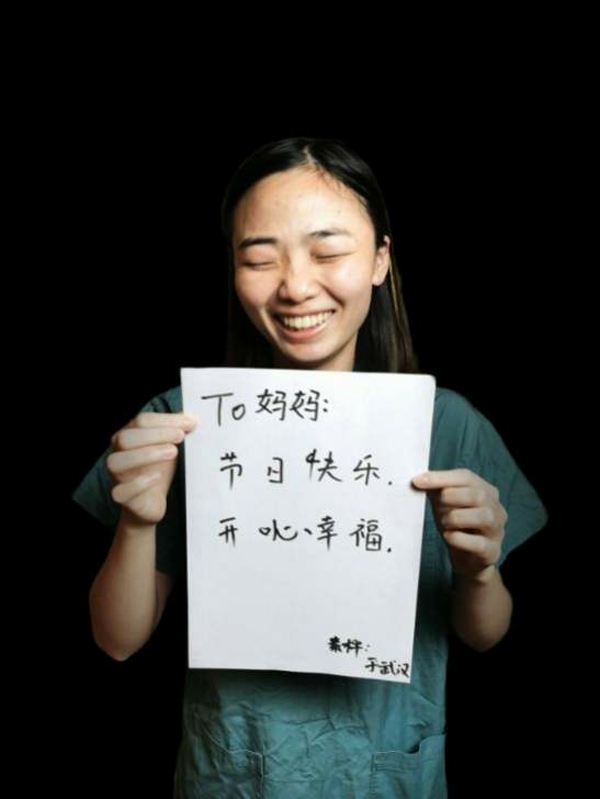 To 妈妈:
节日快乐.
开心幸福.
于武汉